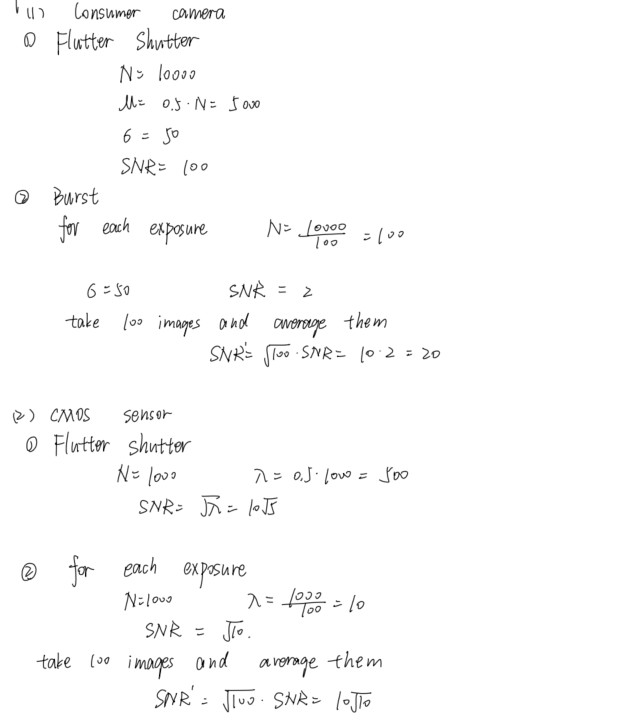 (1) Consumer camera
① Flutter Shutter
N = 10000
μ = 0.5 · N = 5000
6 = 50
SNR = 100
② Burst
for each exposure N = 10000/100 = 100
6 = 50 SNR = 2
take 100 images and average them
SNR' = √100 · SNR = 10 · 2 = 20
(2) CMOS sensor
① Flutter shutter
N = 1000 λ = 0.5 · 1000 = 500
SNR = √λ = 10√5
② for each exposure
N = 1000 λ = 1000/100 = 10
SNR = √10.
take 100 images and average them
SNR' = √100 · SNR = 10√10